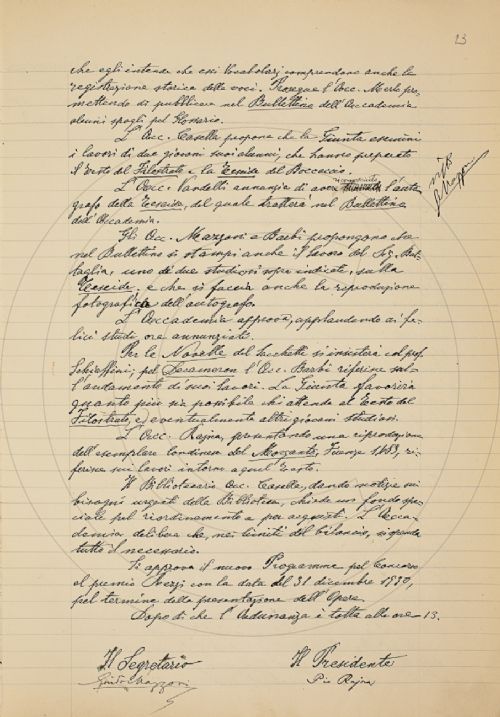 13
che egli intende che essi Vocabolarj comprendano anche la
registrazione storica delle voci. Prosegue l'Acc. Merlo pro-
mettendo di pubblicare nel Bullettino dell'Accademia
alcuni spogli pel Glossario.
L'Acc. Casella propone che la Giunta esamini
i lavori di due giovani suoi alunni, che hanno preparato
il testo del Filostrato e la Teseida del Boccaccio.
L'Acc. Vandelli annunzia di avere riconosciuto l'auto
grafo della Teseida, del quale tratterà nel Bullettino
dell'Accademia.
Gli Acc. Mazzoni e Barbi propongono che
nel Bullettino si stampi anche il lavoro del Sig. Bat-
taglia, uno de' due studiosi sopra indicati, sulla
Teseida, e che si faccia anche la riproduzione
fotografica dell'autografo.
L'Accademia approva, applaudendo ai fe-
lici studi, ora annunziati.
Per le Novelle del Sacchetti si insisterà col prof.
Schiaffini; pel Decameron l'Acc. Barbi riferisce sul-
l'andamento di suoi lavori. La Giunta favorirà
quanto più sia possibile chi attende al testo del
Filostrato, ed eventualmente altri giovani studiosi.
L'Acc. Rajna, presentando una riproduzione
dell'esemplare londinese del Morgante, Firenze 1483, ri-
ferisce sui lavori intorno a quel testo.
Il Bibliotecario Acc. Casella, dando notizie sui
bisogni urgenti della Biblioteca, chiede un fondo spe-
ciale pel riordinamento e per acquisti. L'Acca-
demia delibera che, nei limiti del bilancio, si spenda
tutto il necessario.
Si approva il nuovo Programma pel Concorso
al premio Rezzi con la data del 31 dicembre 1930,
pel termine della presentazione dell'Opera.
Dopo di che l'Adunanza è tolta alle ore 13.
Il Segretario
Guido Mazzoni
Il Presidente
Pio Rajna
visto
G. Mazzoni